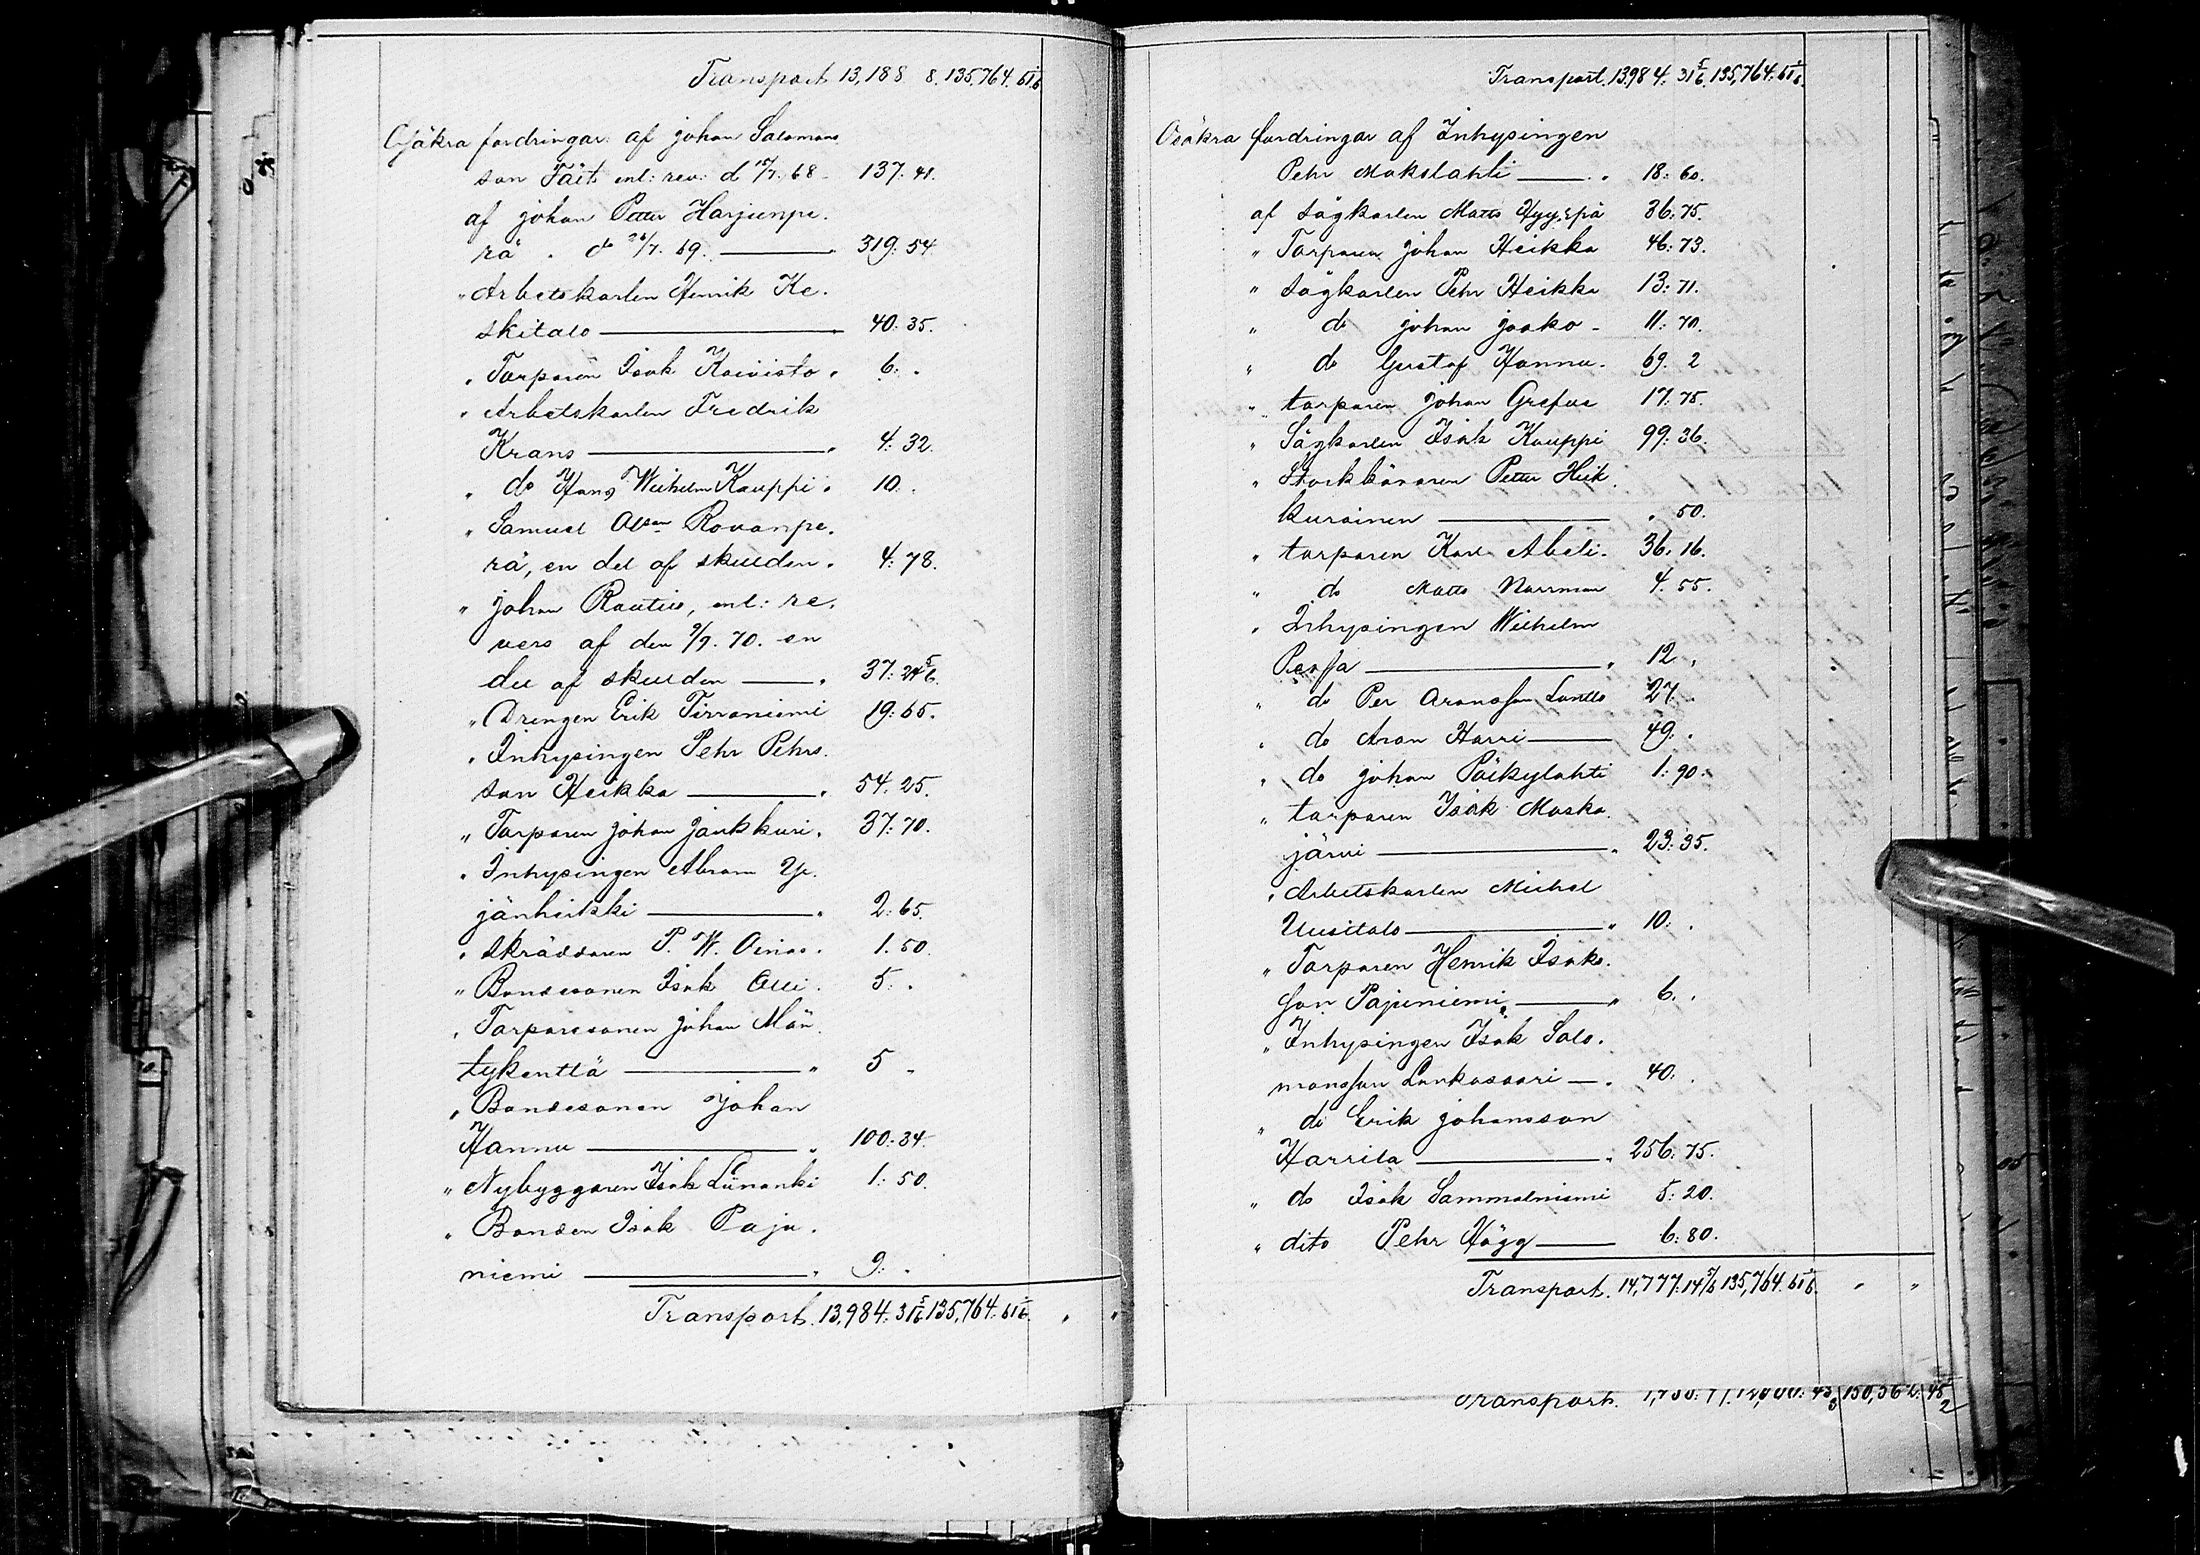 Transport 13,188 8. 135,764. 61 1/6
Osäkra fordringar af johan Salomons
son Täit enl: rev: d 15/7. 68 - 137: 41.
af johan Petter Harjunpe.
rä . do 26/7. 69. — 319: 54
" Arbetskarlen Henrik Ke.
skitalo — 40: 35.
" Torparen Isak Koivisto . 6: .
" Arbetskarlen Fredrik
Krans — 4: 32.
" do Hans Wilhelm Kauppi . 10. .
" Samuel Olson Rovanpe.
rä, en del af skulden . 4: 78.
" johan Rautio, enl: re.
vers af den 9/9. 70. en
del af skulden — . 37: 24 5/6.
" Drengen Erik Tirroniemi 19: 65.
" Inhysingen Pehr Pehrs.
son Heikka — . 54. 25.
" Torparen johan jankkuri . 37: 70.
" Inhysingen Abram Yli.
jänheikki — . 2: 65.
" skräddaren P. W. Oinas . 1. 50.
" Bondesonen Isak Olli . 5: .
" Torparesonen johan Män.
tykenttä — " 5 "
" Bondesonen Johan
Hannu — . 100: 34.
" Nybyggaren Isak Lünanki 1: 50.
" Bonden Isak Paju.
niemi — . 9: .
Transport 13,984: 31 5/6. 135,764. 61 1/6. " "
Transport. 13,984: 31 5/6. 135,764: 61 1/6.
Osäkra fordringar af Inhysingen
Pehr Mokslahti — . 18: 60.
af sågkarlen Matts Hyyspä 36: 75.
" Torparen johan Heikka 46: 73.
" sågkarlen Pehr Heikka 13: 71.
" do johan jaako - 11: 70.
" do Gustaf Hannu . 69. 2
" torparen johan Grefus 17: 75.
" Sågkarlen Isak Kauppi 99: 36.
" Stockbäraren Petter Heik.
kurainen — " 50.
" torparen Karl Abeli . 36. 16.
" do Matts Norrman 4. 55.
" Inhysingen Wilhelm
Perssa — . 12 .
" do Per Aronsson Lontto 27. .
" do Aron Harri — 49. .
" do johan Päkylahti 1: 90.
" torparen Isak Mosko.
järvi — " 23: 35.
" Arbetskarlen Michel
Uusitalo — " 10: .
" Torparen Henrik Isaks.
son Pajuniemi — " 6. .
" Inhysingen Isak Salo.
monsson Lankossaari — . 40: .
" do Erik johansson
Harrila — . 256: 75.
" do Isak Sammalniemi 5: 20.
" dito Pehr Högg — 6: 80.
Transport. 14,777: 14 5/6 135,764. 61 1/6. " "
Transport.